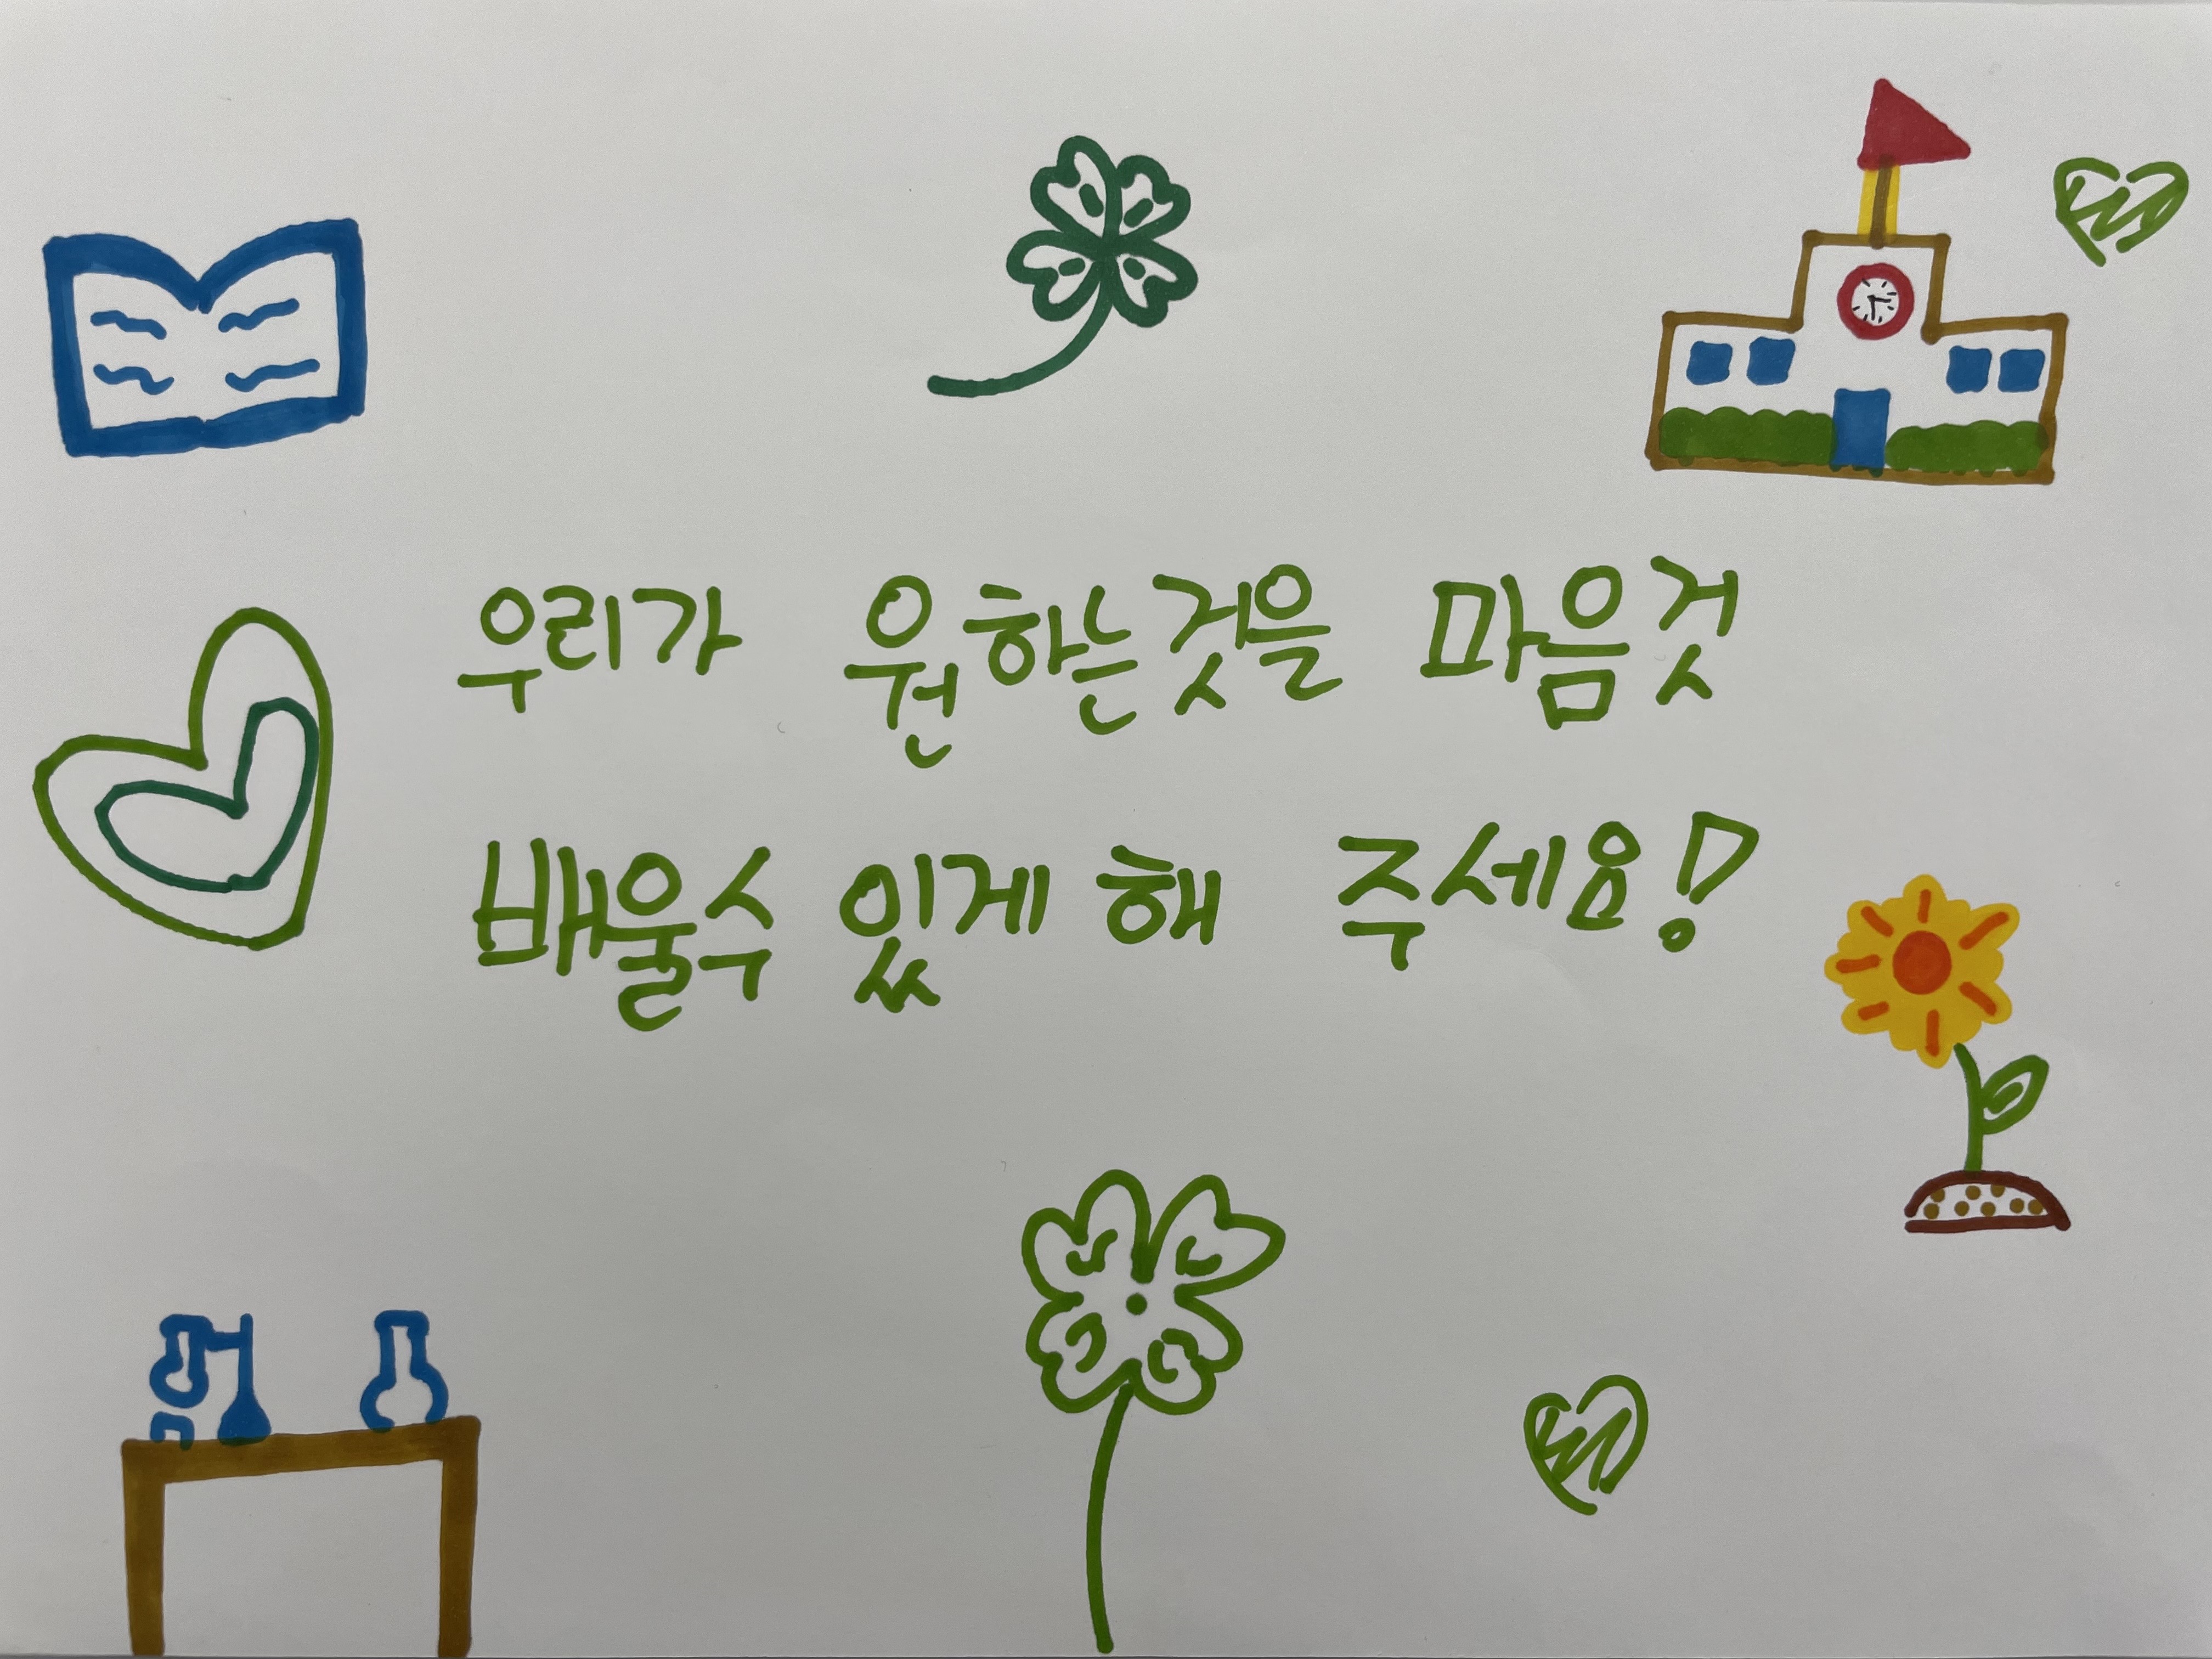 우리가 원하는것을 마음껏
배울수 있게 해 주세요!